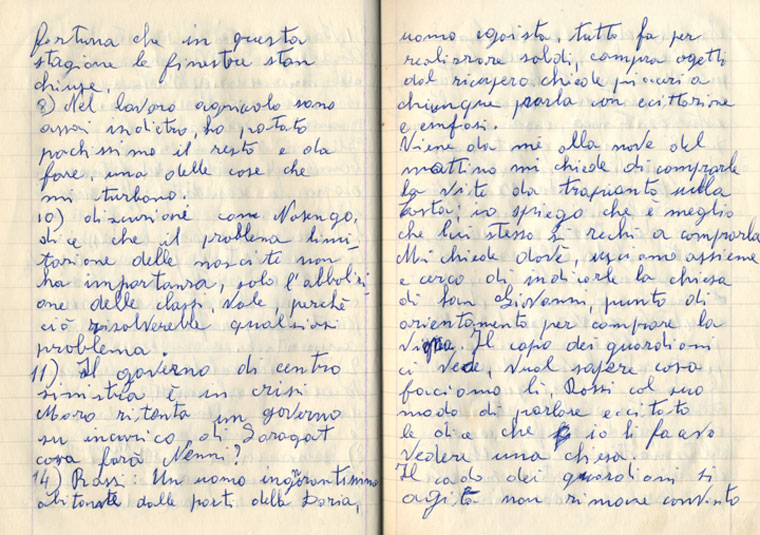 fortuna che in questa
stagione le finestre stan
chiuse.
8) Nel lavoro agricolo sono
assai indietro, ho potato
pochissimo il resto e da
fare, una delle cose che
mi turbano.
10) discusione con Nosengo,
dice che il problema limi-
tazione delle nascite non
ha importanza, solo l'abbolizi-
one delle classi, vale, perchè
ciò risolverebbe qualsiasi
problema.
11) Il governo di centro
sinistra è in crisi
Moro ritenta un governo
su incarico di Saragat
cosa farà Nenni?
14) Rossi: Un uomo ingnorantissimo
abitante dalle parti della Doria,
uomo egoista, tutto fa per
realizzare soldi, compra ogetti
dal ricupero chiede piaceri a
chiunque parla con ecittazione
e enfasi.
Viene da me alla nove del
mattino mi chiede di comprarle
la vite da trapianto sulla
testa; io spiego che è meglio
che lui stesso si rechi a comprarla
Mi chiede dov'è, usciamo assieme
e cerco di indicarle la chiesa
di San Giovanni, punto di
orientamento per comprare la
Il capo dei guardiani
ci Vede, Vuol sapere cosa
facciamo li, Rossi col suo
modo di parlare eccitato
le dice che io li facevo
Vedere una chiesa.
Il capo dei guardiani si
agita non rimane convinto